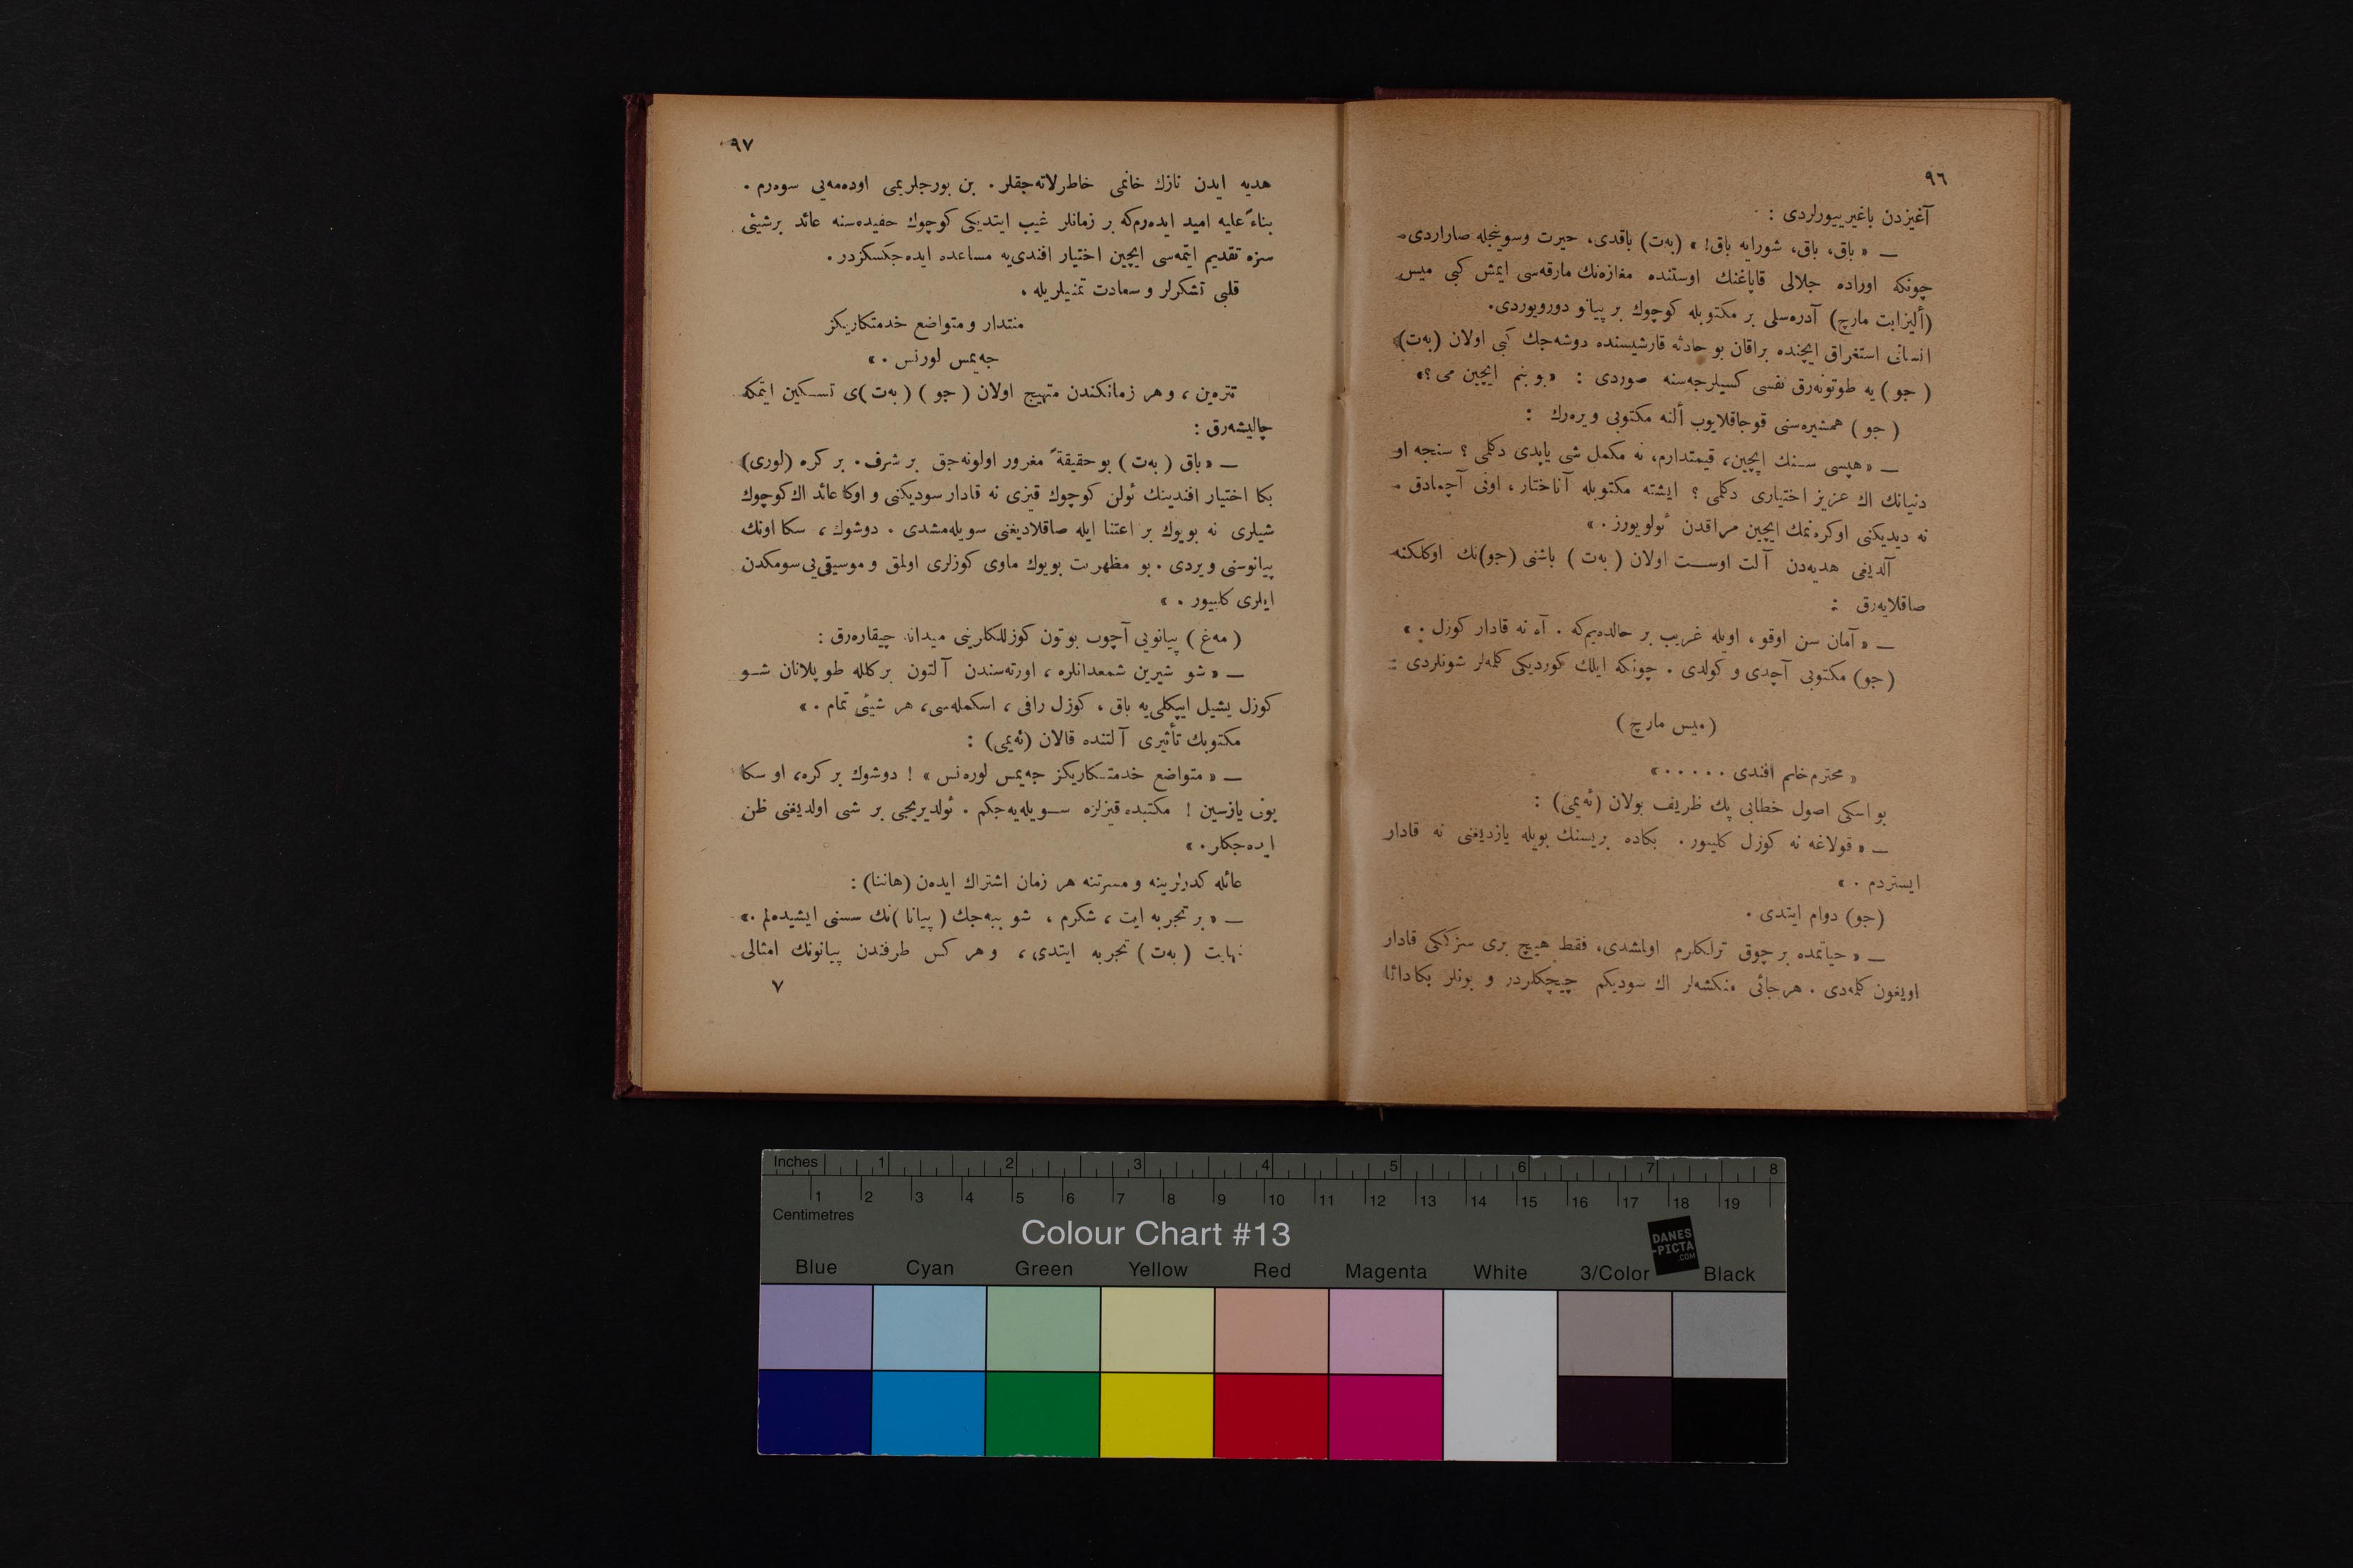 ٩٦
آغیزدن باغیرییورلردی :
— « باق، باق، شورایه باق! » (بەت) باقدی، حیرت وسوینجله صاراردی.
چونكه اوراده جلالی قاپاغنك اوستنده مغازەنك مارقەسی ایمش كبی میس
(ألیزابت مارچ) آدرەسلی بر مكتوبله كوچوك بر پیانو دورویوردی.
انسانی استغراق ایچنده براقان بو حادثه قارشیسنده دوشەجك كبی اولان (بەت)
(جو) یه طوتونەرق نفسی كسیلرجەسنه صوردی : «بو بنم ایچین می؟»
(جو) همشیرەسنی قوجاقلایوب ألنه مكتوبی ویرەرك :
— « هپسی سنك ایچین، قیمتدارم، نه مكمل شی یاپدی دكلمی ؟ سنجه او
دنیانك اك عزیز اختیاری دكلمی ؟ ایشته مكتوبله آناختار، اونی آچمادق .
نه دیدیكنی اوكرەنمك ایچین مراقدن ئولویورز . »
آلدیغی هدیەدن آلت اوست اولان (بەت) باشنی (جو)نك اوكلكنه
صاقلایەرق :
— « آمان سن اوقو، اویله غریب بر حالدەیم‌كه . آه نه قادار كوزل . »
(جو) مكتوبی آچدی و كولدی . چونكه ایلك كوردیكی كلمەلر شونلردی :
(میس مارچ)
« محترم خانم افندی ٠٠٠٠٠ »
بو اسكی اصول خطابی پك ظریف بولان (ئەیمی) :
— « قولاغه نه كوزل كلیور . بكاده بریسنك بویله یازدیغنی نه قادار
ایستردم . »
(جو) دوام ایتدی .
— « حیاتمده بر چوق ترلكلرم اولمشدی، فقط هیچ بری سزككی قادار
اویغون كلمەدی . هرجائی منكشەلر اك سودیكم چیچكلردر و بونلر بكا دائما
٩٧
هدیه ایدن نازك خانمی خاطرلاتەجقلر . بن بورجلریمی اودەمەیی سوەرم .
بناءً علیه امید ایدەرم‌كه بر زمانلر غیب ایتدیكی كوچوك حفیدەسنه عائد برشیئی
سزه تقدیم ایتمەسی ایچین اختیار افندی‌یه مساعده ایدەجكسكزدر .
قلبی تشكرلر و سعادت تمنیلریله ،
منتدار و متواضع خدمتكاریكز
جەیمس لورنس . »
تترەین ، و هر زمانكندن متهیج اولان (جو) (بەت)ی تسكین ایتمكه
چالیشەرق :
— « باق (بەت) بو حقیقةً مغرور اولونەجق بر شرف . بر كره (لوری)
بكا اختیار افندینك ئولن كوچوك قیزی نه قادار سودیكنی و اوكا عائد اك كوچوك
شیلری نه بویوك بر اعتنا ایله صاقلادیغنی سویلەمشدی . دوشوك ، سكا اونك
پیانوسنی ویردی . بو مظهریت بویوك ماوی كوزلری اولمق و موسیقی‌یی سومكدن
ایلری كلییور . »
(مەغ) پیانویی آچوب بوتون كوزللكلرینی میدانه چیقارەرق :
— « شو شیرین شمعدانلره ، اورتەسندن آلتون بر كلله طوپلانان شو
كوزل یشیل ایپكلی‌یه باق ، كوزل رافی ، اسكملەسی، هر شیئی تمام . »
مكتوبك تأثیری آلتنده قالان (ئەیمی) :
— « متواضع خدمتكاریكز جەیمس لورەنس » ! دوشوك بر كره، او سكا
بونی یازسین ! مكتبده قیزلره سویلەیەجكم . ئولدیریجی بر شی اولدیغنی ظن
ایدەجكلر . »
عائله كدرلرینه و مسرتنه هر زمان اشتراك ایدەن (هاننا) :
— « بر تجربه ایت ، شكرم ، شو ببەجك (پیانا)نك سسنی ایشیدەلم . »
نهایت (بەت) تجربه ایتدی ، و هر كس طرفندن پیانونك امثالی
٧
Inches 1 2 3 4 5 6 7 8
1 2 3 4 5 6 7 8 9 10 11 12 13 14 15 16 17 18 19
Centimetres
Colour Chart #13
DANES
-PICTA
.COM
Blue Cyan Green Yellow Red Magenta White 3/Color Black